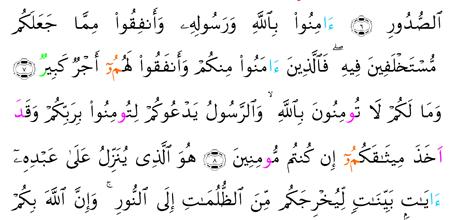 ٱلصُّدُورِ ٦ ءَامِنُوا۟ بِٱللَّهِ وَرَسُولِهِۦ وَأَنفِقُوا۟ مِمَّا جَعَلَكُم
مُّسْتَخْلَفِينَ فِيهِۖ فَٱلَّذِينَ ءَامَنُوا۟ مِنكُمْ وَأَنفَقُوا۟ لَهُمُۥٓ أَجْرٌ كَبِيرٌ ٧
وَمَا لَكُمْ لَا تُومِنُونَ بِٱللَّهِۙ وَٱلرَّسُولُ يَدْعُوكُمْ لِتُومِنُوا۟ بِرَبِّكُمْ وَقَدَ
اَخَذَ مِيثَٰقَكُمُۥٓ إِن كُنتُم مُّومِنِينَ ٨ هُوَ ٱلَّذِى يُنَزِّلُ عَلَىٰ عَبْدِهِۦٓ
ءَايَٰتٍۭ بَيِّنَٰتٍ لِّيُخْرِجَكُم مِّنَ ٱلظُّلُمَٰتِ إِلَى ٱلنُّورِۚ وَإِنَّ ٱللَّهَ بِكُمْ